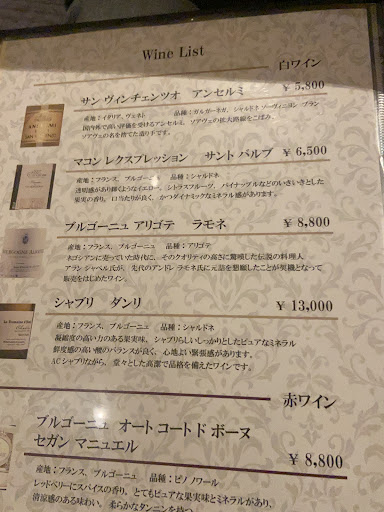 Wine List
白ワイン
サン ヴィンチェンツオ アンセルミ ¥ 5,800
産地:イタリア、ヴェネト 品種:ガルガーネガ、シャルドネ ソーヴィニヨン ブラン
国内外で高い評価を受けるアンセルミ。ソアヴェの拡大路線をこばみ、
ソアヴェの名を捨てた造り手です。
マコン レクスプレッション サント バルブ ¥ 6,500
産地:フランス、ブルゴーニュ 品種:シャルドネ
透明感があり輝くようなイエロー、シトラスフルーツ、パイナップルなどのいきいきとした
果実の香り。口当たりが良く、かつダイナミックなミネラル感があります。
ブルゴーニュ アリゴテ ラモネ ¥ 8,800
産地:フランス、ブルゴーニュ 品種:アリゴテ
ネゴシアンに売っていた時代に、そのクオリティの高さに驚嘆した伝説の料理人
アラン シャペル氏が、先代のアンドレ ラモネ氏に元詰を懇願したことが契機となって
販売をはじめたワイン。
シャブリ ダンリ ¥ 13,000
産地:フランス、ブルゴーニュ 品種:シャルドネ
凝縮度の高い力のある果実味、シャブリらしいしっかりとしたピュアなミネラル
鮮度感の高い酸のバランスが良く、心地よい緊張感があります。
ACシャブリながら、堂々とした高潔で品格を備えたワインです。
赤ワイン
ブルゴーニュ オート コート ド ボーヌ
セガン マニュエル ¥ 8,800
産地:フランス、ブルゴーニュ 品種:ピノ ノワール
レッドベリーにスパイスの香り、とてもピュアな果実味とミネラルがあり、
清涼感のある味わい。柔らかなタンニンを持つ